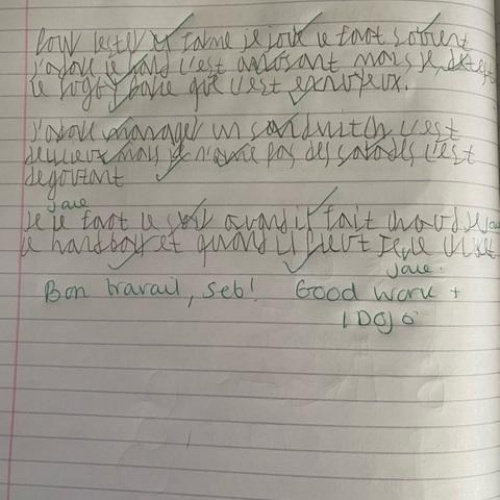 Pour rester et forme je joue le foot souvent
j'adore le hand c'est amusant mais je deteste
le rugby parce que c'est ennuyeux.
J'adore manager un sandwitch c'est
delicieux mais je n'aime pas des salades c'est
degoutant
faire
je le foot le quand il fait chaud je
le handball et quand il pleut je le
faire
Bon travail, Seb! Good work +
1 DOJO